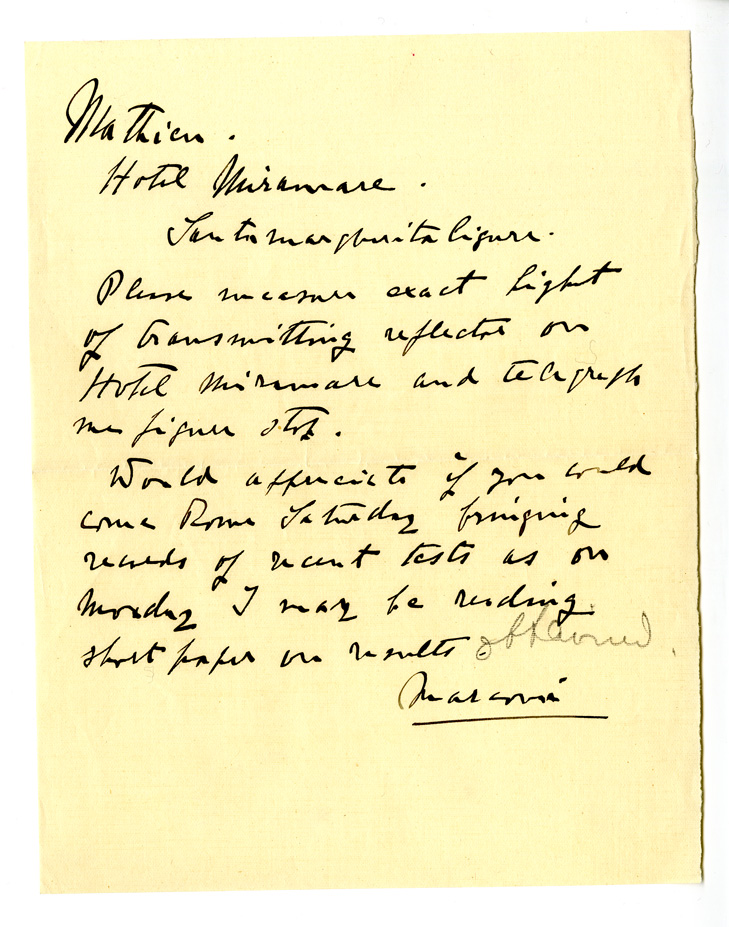 Mathieu.
Hotel Miramare.
Santamargherita ligure.
Please measure exact hight
of transmitting reflector on
Hotel Miramare and telegraph
me figure stop.
Would appreciate if you could
come Rome Saturday bringing
records of recent tests as on
Monday I may be reading
short paper on results obtained.
Marconi